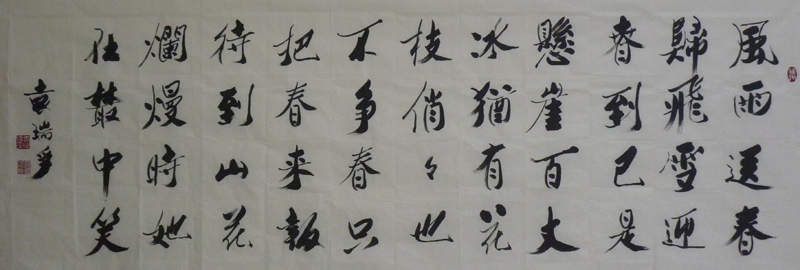 風雨送春
歸飛雪迎
春到已是
懸崖百丈
冰猶有花
枝俏々也
不争春只
把春来報
待到山花
爛熳時她
在叢中笑
袁瑞